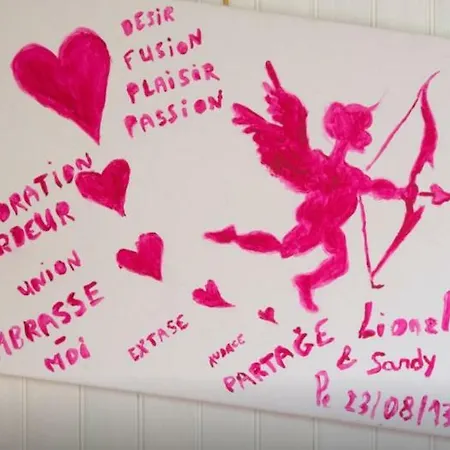 DESIR
FUSION
PLAISIR
PASSION
DORATION
RDEUR
UNION
MBRASSE
-MOI
EXTASE
AUDACE
PARTAGE
Lionel
& Sandy
le 23/08/13